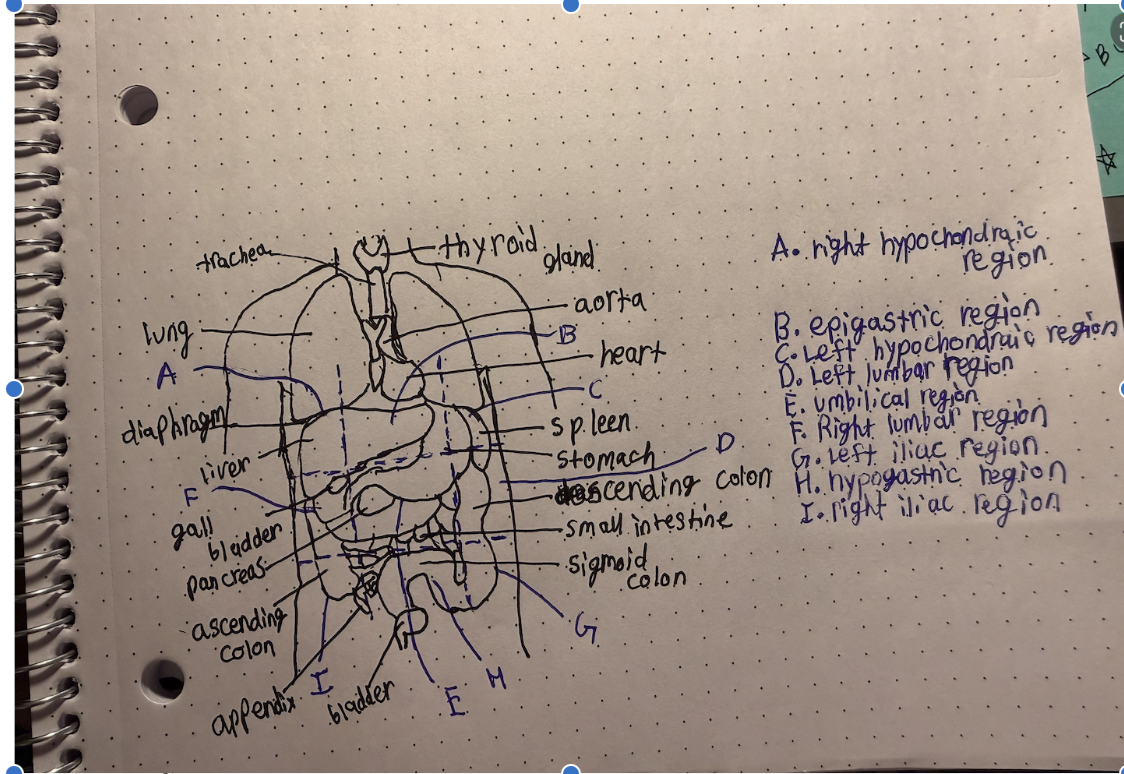 trachea
thyroid
gland
aorta
lung
B
heart
A
C
diaphragm
spleen
liver
stomach
D
F
descending colon
gall
bladder
small intestine
pancreas
sigmoid
colon
ascending
colon
G
appendix
I
bladder
E
H
A. right hypochondraic
region
B. epigastric region
C. Left hypochondraic region
D. Left lumbar region
E. umbilical region
F. Right lumbar region
G. Left iliac region
H. hypogastric region
I. right iliac region
B